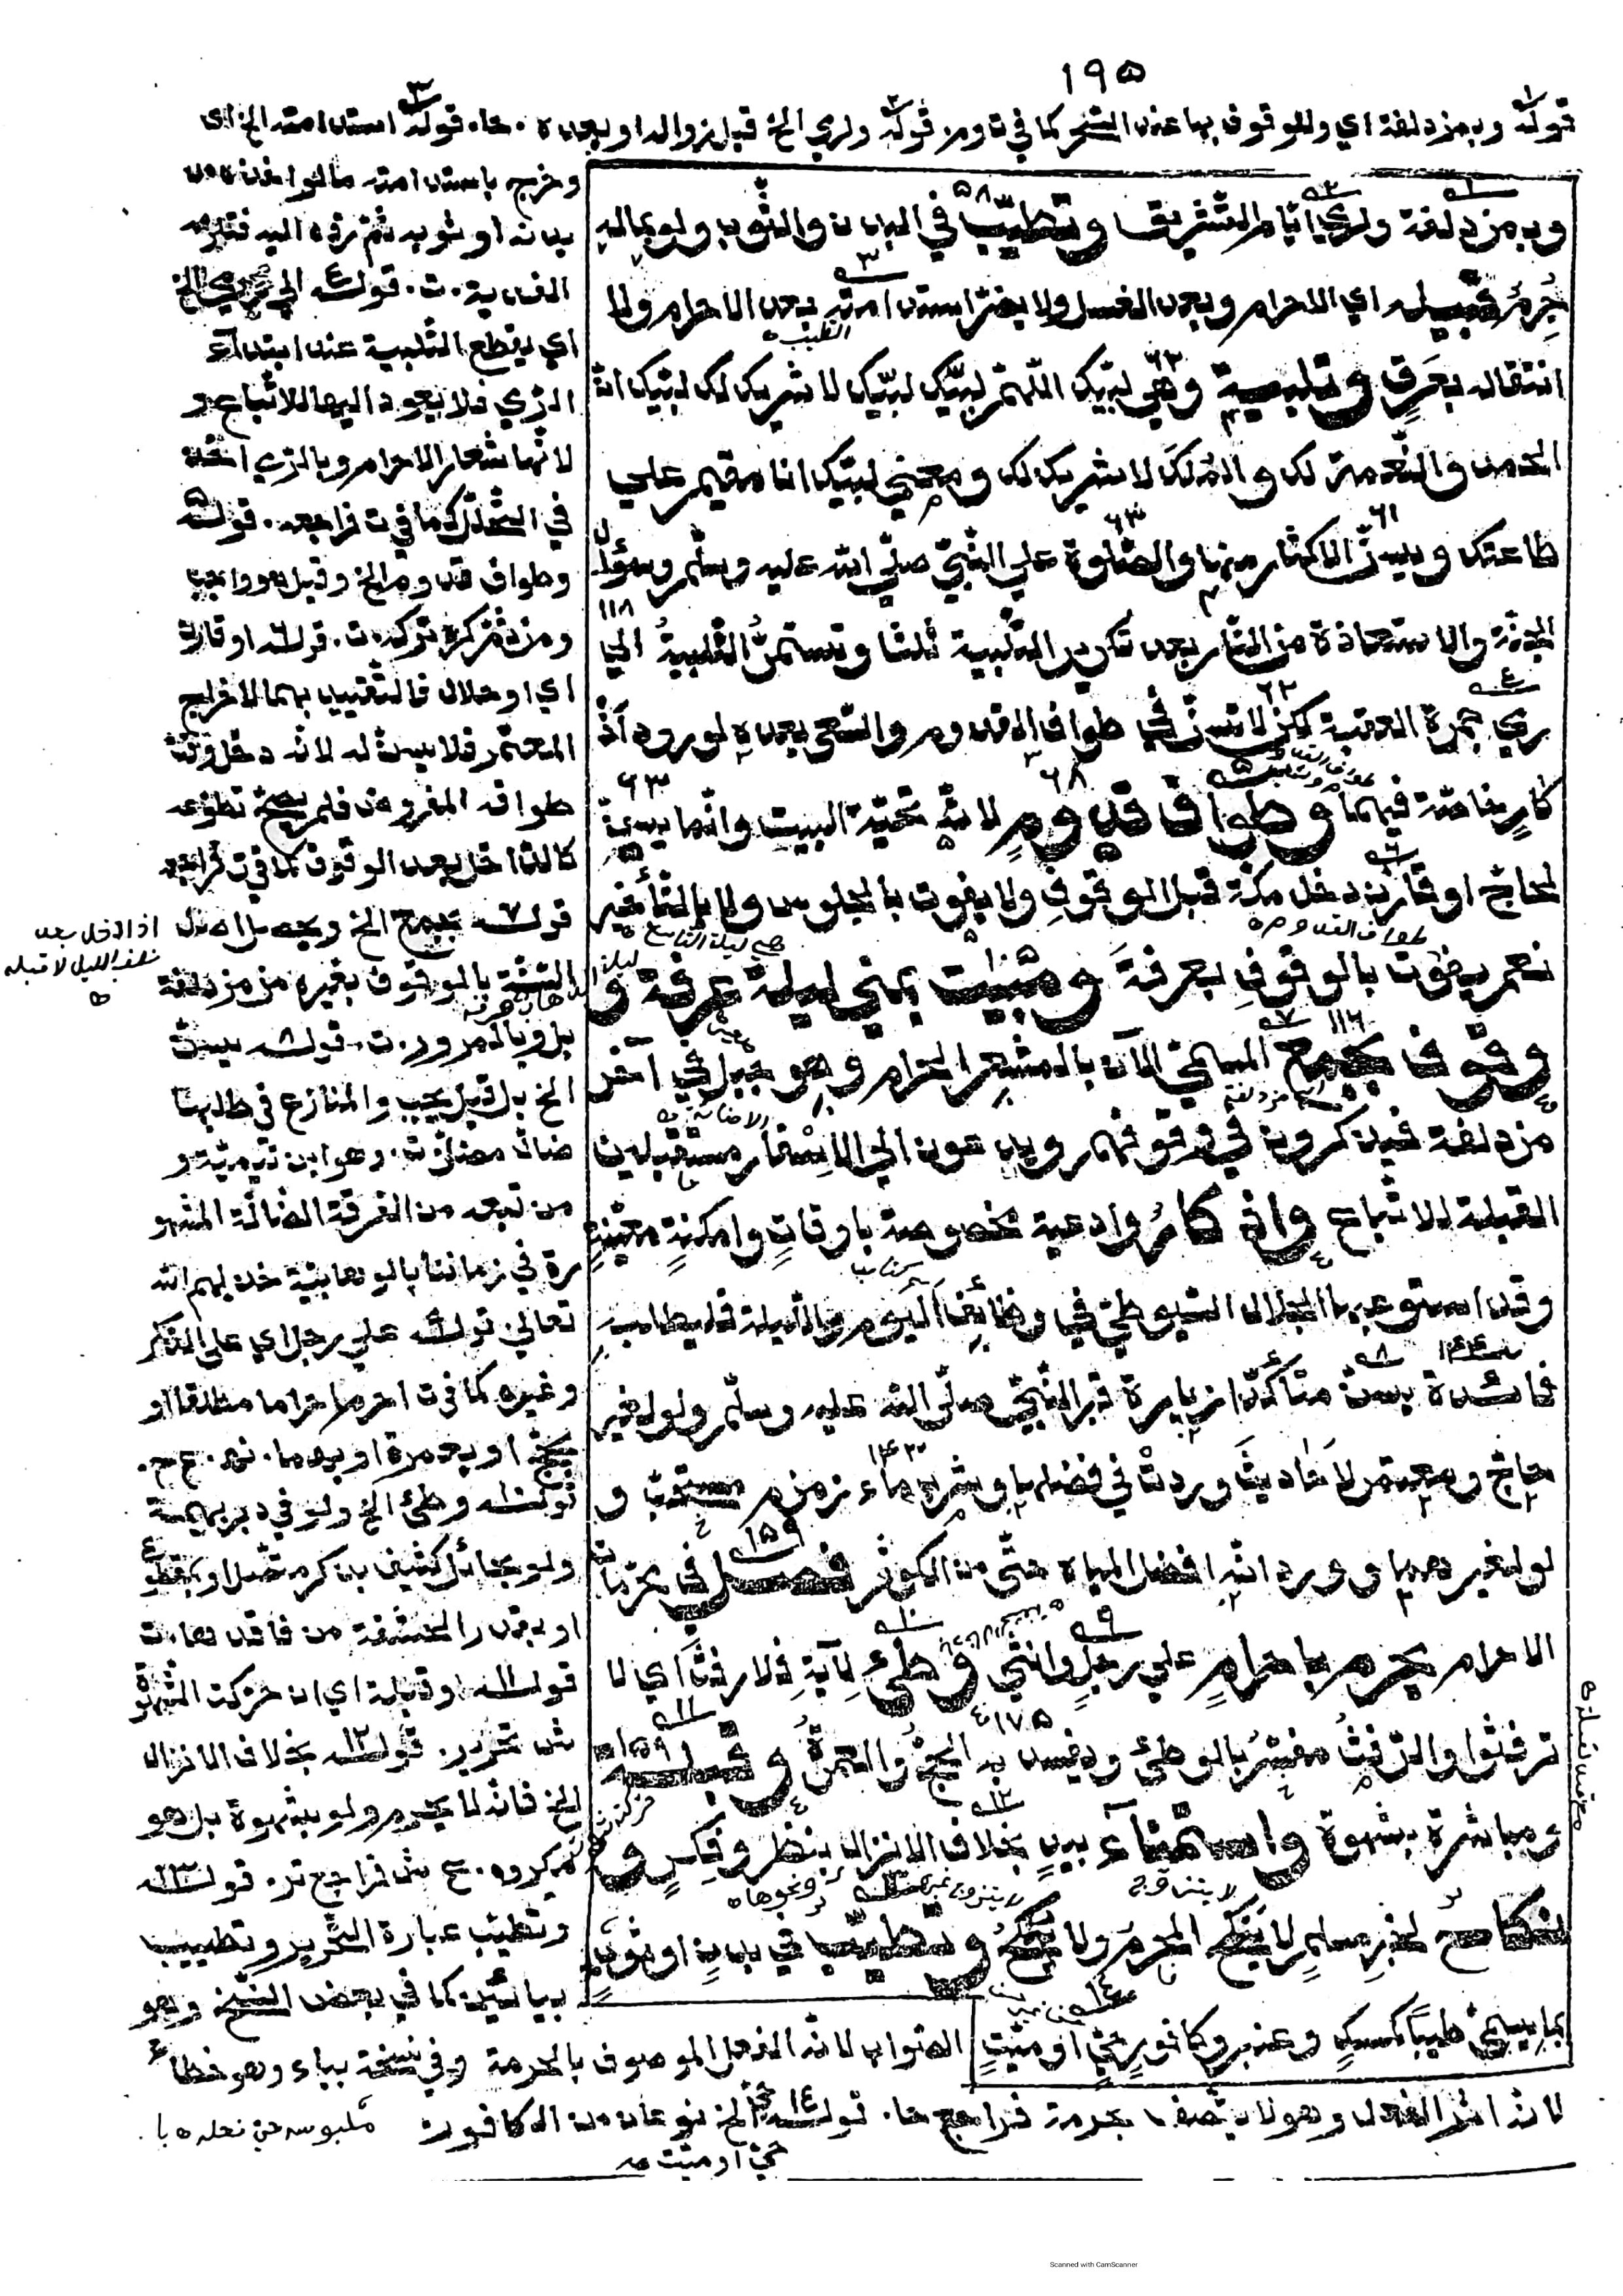 ١٩٥
قوله وبمزدلفة اي وللوقوف بها عند الشحر كما في ت ومر قوله ولرمي الخ قبل زوال او بعده ه . حا . قوله استدامته الخ اي
وبمزدلفة ولرمي ايام التشريق وتطيب في البدن والثوب ولو بماله
جرم قبيله اي الاحرام وبعد الغسل ولا يضر استدامته بعد الاحرام ولا
انتقاله بعرق وتلبية وهي لبيك اللهم لبيك لبيك لا شريك لك لبيك ان
الحمد والنعمة لك والملك لا شريك لك ومعني لبيك انا مقيم علي
طاعتك ويسن الاكثار منها والصلوة علي النبي صلي الله عليه وسلم وسؤال
الجنة والاستعاذة من النار بعد تكرير التلبية ثلثا وتستمر التلبية الي
رمي جمرة العقبة لكن لا تسن في طواف القدوم والسعي بعده لورود اذ
كار خاصة فيهما وطواف قدوم لانه تحية البيت وانما يسن
لحاج او قارن دخل مكة قبل الوقوف ولا يفوت بالجلوس ولا بالتأخير
نعم يفوت بالوقوف بعرفة ومبيت بمني ليلة عرفة و
وقوف بجمع المسمي الآن بالمشعر الحرام وهو جبل في آخر
مزدلفة فيذكرون في وقوفهم ويدعون الي الاسفار مستقبلين
القبلة للاتباع واذكار وادعية مخصوصة باوقات وامكنة معينة
وقد استوعبها الجلال السيوطي في وظائف اليوم والليلة فليطلبه
فائدة يسن متأكدا زيارة قبر النبي صلي الله عليه وسلم ولو لغير
حاج ومعتمر لاحاديث وردت في فضلها وشرب ماء زمزم مستحب و
لو لغيرهما وورد انه افضل المياه حتي من الكوثر فصل في محرمات
الاحرام يحرم باحرام علي رجل وانثي وطئ لآية فلا رفث اي لا
ترفثوا والرفث مفسر بالوطئ ويفسد به الحج والعمرة وقبلة
ومباشرة بشهوة واستمناء بيد بخلاف الانزال بنظر وفكر و
نكاح لخبر مسلم لا ينكح المحرم ولا ينكح وتطيب في بدن او ثوب
بما يسمي طيبا كمسك وعنبر وكافور حي او ميت
وخرج باستدامته ما لو اخذه من
بدنه او ثوبه ثم رده اليه فتلزمه
الفدية . ت . قوله الي رمي الخ
اي يقطع التلبية عند ابتداء
الرمي فلا يعود اليها للاتباع و
لانها شعار الاحرام وبالرمي اخذ
في التحلل كما في ت فراجعه . قوله
وطواف قدوم الخ وقيل هو واجب
ومن ثم كره تركه . ت . قوله او قارن
اي او حلال فالتقييد بهما لاخراج
المعتمر فلا يسن له لانه دخل وقت
طوافه المفروض فلم يصح تطوعه
كالداخل بعد الوقوف كما في ت فراجعه
قوله بجمع الخ ويحصل اصل
السنة بالوقوف بغيره من مزدلفة
بل وبالمرور . ت . قوله يسن
الخ بل قيل يجب والمنازع في طلبها
ضال مضل ت . وهو ابن تيمية و
من تبعه من الفرقة الضالة المشهو
رة في زماننا بالوهابية خذلهم الله
تعالي قوله علي رجل اي علي الذكر
وغيره كما في ت احرم احراما مطلقا او
بحج او بعمرة او بهما . نه . ع ح .
قوله وطئ الخ ولو في دبر بهيمة
ولو بحائل كثيف بذكر متصل او بمقطوع
او بقدر الحشفة من فاقدها . ت
قوله او قبلة اي ان حركت الشهوة
ش تحرير . قوله بخلاف الانزال
الخ فانه لا يحرم ولو بشهوة بل هو
مكروه . ع ش فراجع تر . قوله
وتطيب عبارة التحرير وتطييب
بيائين كما في بعض النسخ وهو
الصواب لانه الفعل الموصوف بالحرمة وفي نسخة بياء وهو خطأ
لانه اثر الفعل وهو لا يتصف بحرمة فراجع حا . قوله حي الخ نوعان من الكافور
حي او ميت
اذا دخل بعد
نصف الليل لا قبله
ط
Scanned with CamScanner